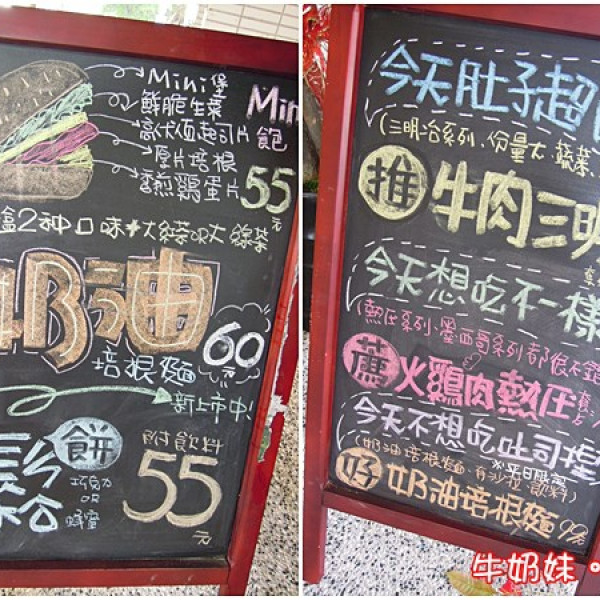 Mini堡
鮮脆生菜
高代価起司片
厚片培根
香煎鷄蛋片
Min
飽
55元
盒2种口味*大紅茶OR大綠茶
奶油
培根麵
60元
新上市中!
鬆餅
巧克力
OR
蜂蜜
附飲料
55元
今天肚子超
(三明治系列,份量大,蔬菜
推 牛肉三明
今天想吃不一樣
(熱压系列、墨西哥系列都很不錯
薦 火鷄肉熱压
今天不想吃吐司捏
(奶油培根麵,有沙拉,飲料)
好 奶油培根麵
牛奶妹。